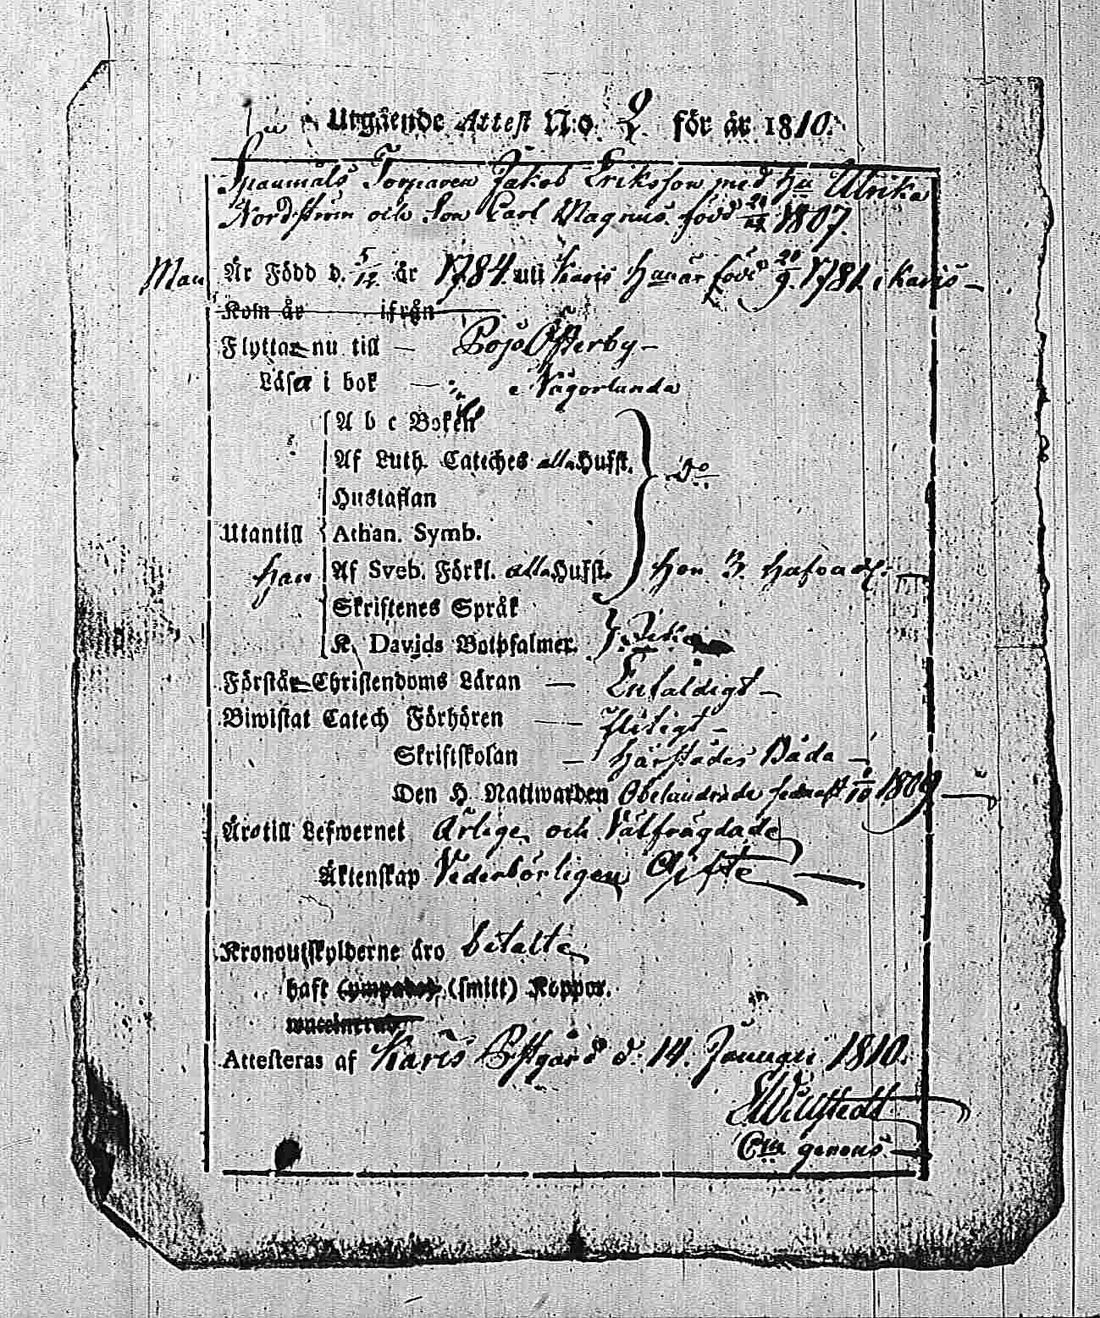 Utgående Attest N:o 2. för år 1810.
Torparen Jakob Eriksson med Hu Ulrika
Nordström och Son Carl Magnus. född 1807.
Man Är Född d. 5/12 år 1784 uti Karis Hu är född 20/9. 1781. i Karis –
Kom år ifrån
Flyttar nu till – Pojo Österby –
Läser i bok – Någorlunda
A b c Boken
Af Luth. Cateches alla Hufst. Do
Hustaflan
Utantill Athan. Symb.
Han Af Sveb. Förkl. alla Hufst. Hon 3. Hufvud
Skriftenes Språk
K. Davids Botpsalmer.
Förstår Christendoms Läran – Enfaldigt –
Biwistat Catech Förhören – Flitigt –
Skriftskolan – härstädes Båda –
Den H. Nattwarden Obehindrade senast 1/10 1809
Äro till Lefwernet Ärlige och Välfrägdade
Äktenskap Vederbörligen Gifte
Kronoutskylderne äro betalte
haft (ympade) (smitt) Koppor.
waccinerad
Attesteras af Karis Prästgård d. 14. Januari 1810.